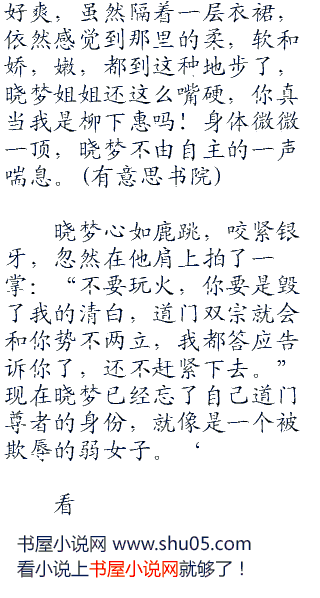 好爽，虽然隔着一层衣裙，
依然感觉到那里的柔，软和
娇，嫩，都到这种地步了，
晓梦姐姐还这么嘴硬，你真
当我是柳下惠吗！身体微微
一顶，晓梦不由自主的一声
喘息。(有意思书院)
晓梦心如鹿跳，咬紧银
牙，忽然在他肩上拍了一
掌：“不要玩火，你要是毁
了我的清白，道门双宗就会
和你势不两立，我都答应告
诉你了，还不赶紧下去。”
现在晓梦已经忘了自己道门
尊者的身份，就像是一个被
欺辱的弱女子。‘
看
书屋小说网 www.shu05.com
看小说上书屋小说网就够了！